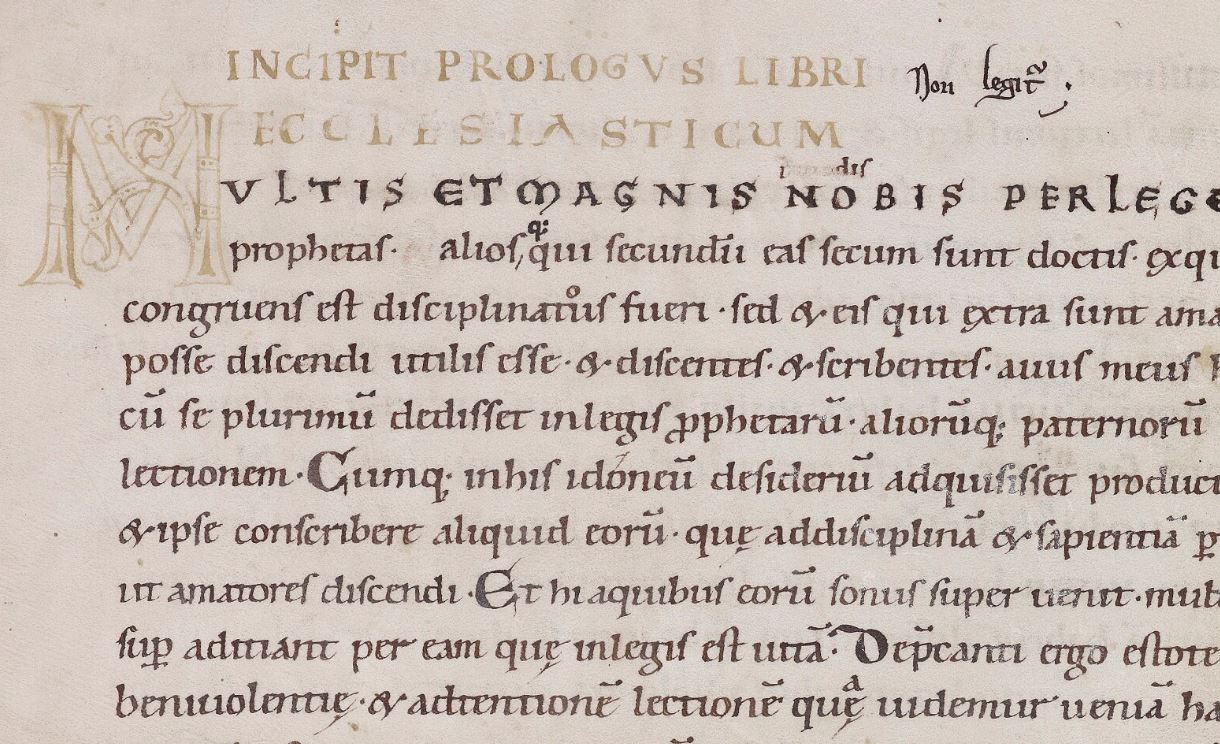 INCIPIT PROLOGVS LIBRI Non legit᷑.
ECCLESIASTICUM
MVLTIS ET MAGNIS NOBIS PERLEGE
dis
prophetas· alios, q: qui secundū eas secum sunt doctis· exqui
congruens est disciplinatois fueri· sed & eis qui extra sunt ama
posse discendi utilis esse· & discentes· & scribentes· auus meus
cū se plurimū dedisset inlegis ꝓphetarū· aliorūq; paternorū
lectionem· Cumq; inhis idóneū desideriū adquisisset produci
& ipse conscribere aliquid eorū· quę addisciplinā & sapientiā ꝑ
ut amatores discendi· Et hi aquibus eorū sonus super uenit· mul
suꝑ aditiant per eam quę inlegis est uitā· Dep̄canti ergo estote
beniuiolentię· & adtentionē lectionē quęa uidemur ueniā ha